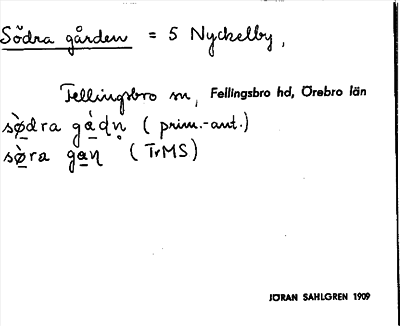 Södra gården = 5 Nyckelby,
Fellingsbro sn, Fellingsbro hd, Örebro län
sø̀dra gàdn̥ (prim.-ant.)
sø̀ra gan (TrMS)
JÖRAN SAHLGREN 1909